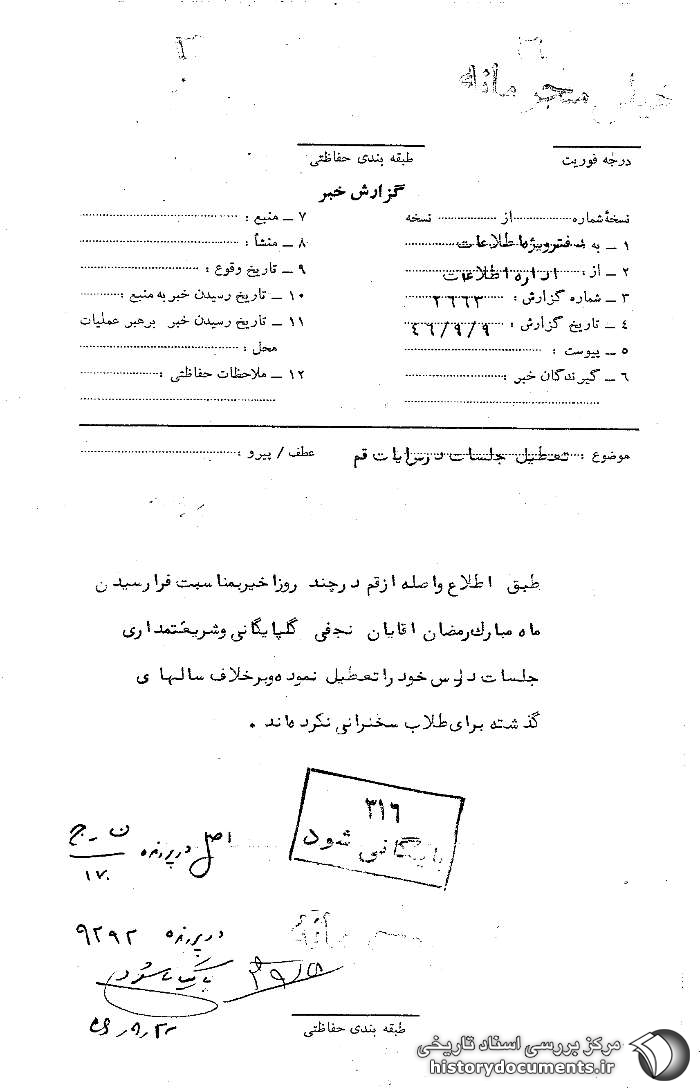 خیلی محرمانه
درجه فوریت
طبقه بندی حفاظتی
گزارش خبر
نسخهٔ شماره ........ از ........ نسخه
۱ ـ به : دفتر ویژه اطلاعات
۲ ـ از : اداره اطلاعات
۳ ـ شماره گزارش : ۲۶۶۳
۴ ـ تاریخ گزارش : ۴۶/۹/۹
۵ ـ پیوست :
۶ ـ گیرندگان خبر :
۷ ـ منبع :
۸ ـ منشأ :
۹ ـ تاریخ وقوع :
۱۰ ـ تاریخ رسیدن خبر به منبع :
۱۱ ـ تاریخ رسیدن خبر برهبر عملیات
محل :
۱۲ ـ ملاحظات حفاظتی :
موضوع : تعطیل جلسات درس ایات قم
عطف / پیرو :
طبق اطلاع واصله از قم در چند روز اخیر بمناسبت فرا رسیدن
ماه مبارک رمضان اقایان نجفی گلپایگانی و شریعتمداری
جلسات درس خود را تعطیل نموده و بر خلاف سالهای
گذشته برای طلاب سخنرانی نکرده اند .
۳۱۶
بایگانی شود
اصل در پرونده
۱۷۰
در پرونده ۹۲۹۲
بایگانی شود
طبقه بندی حفاظتی
مرکز بررسی اسناد تاریخی
historydocuments.ir